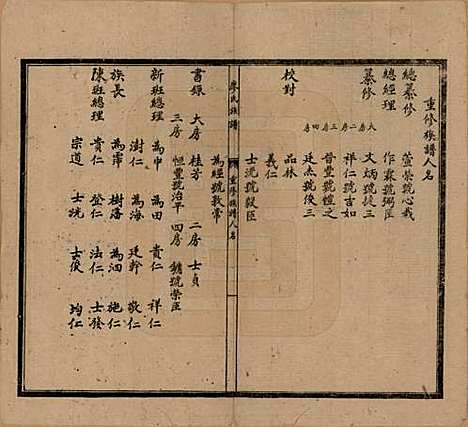 重修族譜人名
總纂修 萱榮號心哉
總經理 作霖號弼臣
纂修 大房 文炳號捷三
二房 祥仁號吉如
三房 晉豐號檀之
四房 廷杰號俊三
校對 品林
義仁
士洗號毅臣
廖氏族譜 重修族譜人名
為經號敦常
書錄 大房 桂芳 二房 士貞
三房 恒豐號治平 四房 號榮臣
新班總理 為中 為田 貴仁 祥仁
澍仁 為海 廷幹 敬仁
族長 為霈 樹落 為泗 施仁
陳班總理 貴仁 登仁 法仁 士發
宗道 士洗 士俊 均仁